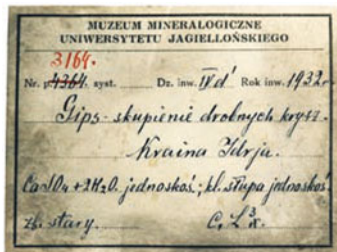 MUZEUM MINERALOGICZNE
UNIWERSYTETU JAGIELLOŃSKIEGO
3164.
Nr. p. 4364. syst. Dz. inw. IVd' Rok inw. 1932.
Gips - skupienie drobnych kryszt.
Kraina Idrja.
CaSO4 + 2H2O. jednoskoś.; kl. słupa jednoskoś.
zb. stary. C, L